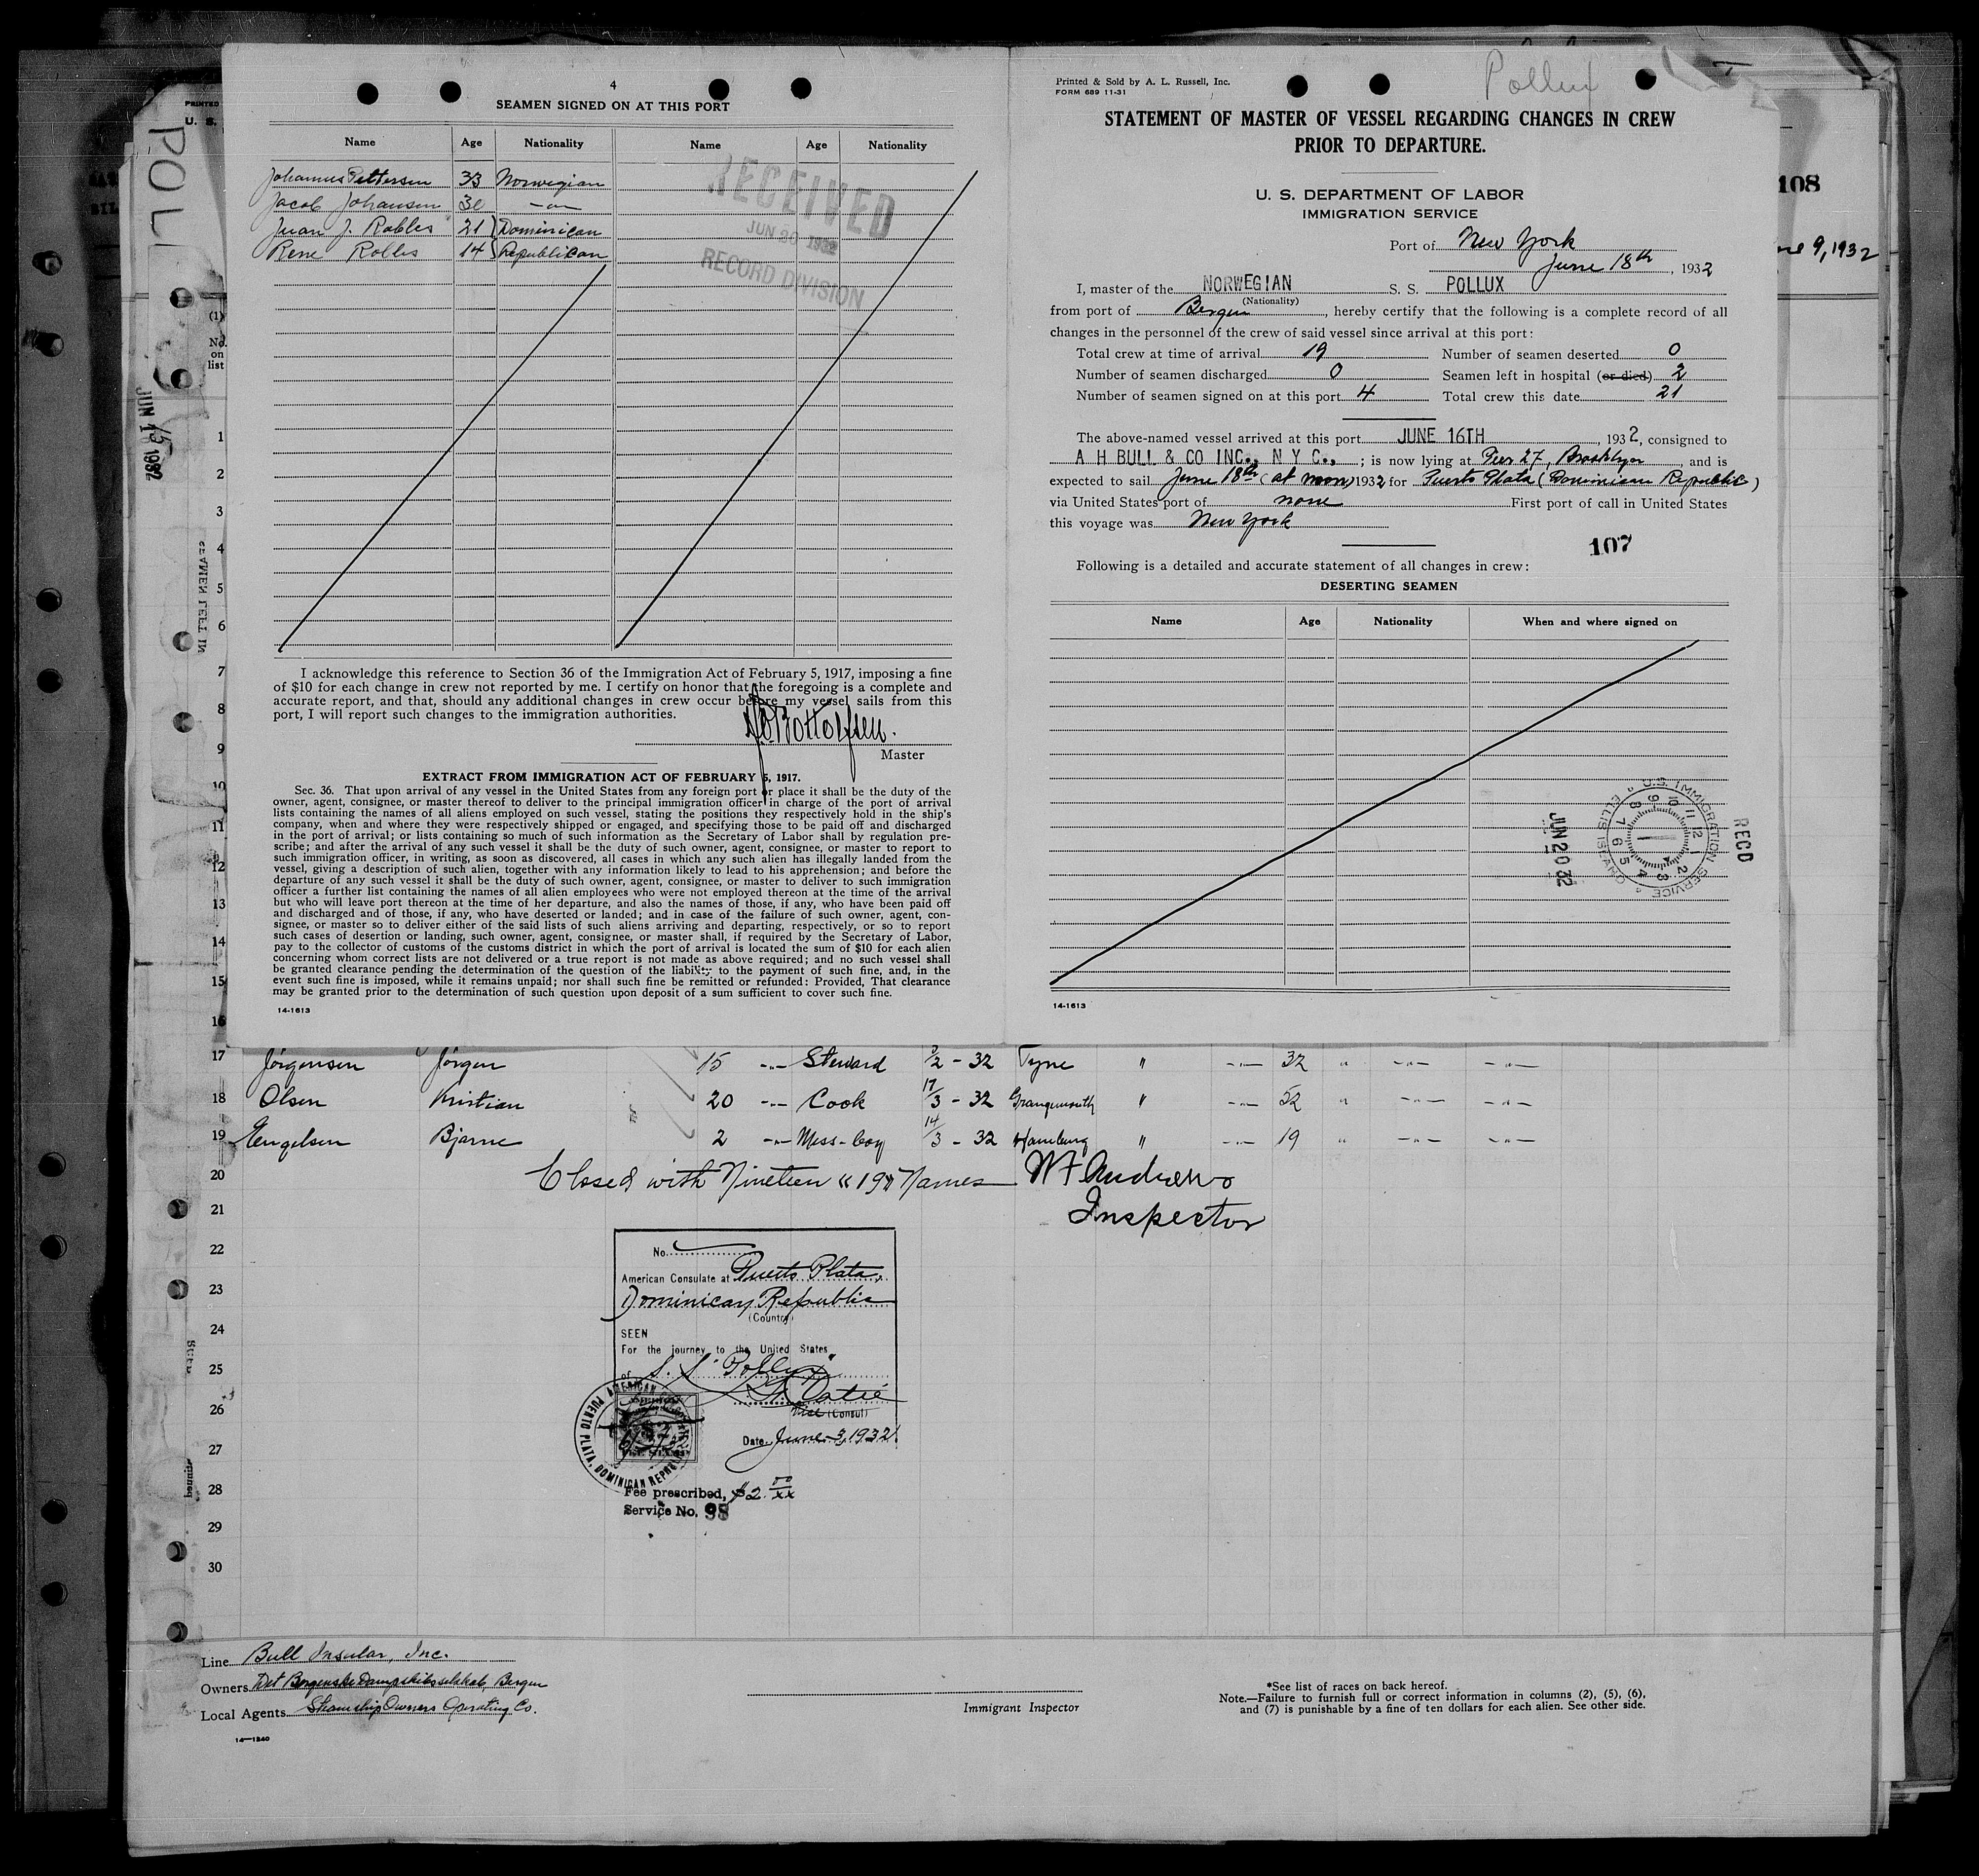 4
SEAMEN SIGNED ON AT THIS PORT
Name Age Nationality Name Age Nationality
Johannes Pettersen 33 Norwegian
Jacob Johansen 30 -"-
Juan J. Robles 21 } Dominican
Rene Robles 14 } Republican
RECEIVED
JUN 20 1932
RECORD DIVISION
I acknowledge this reference to Section 36 of the Immigration Act of February 5, 1917, imposing a fine
of $10 for each change in crew not reported by me. I certify on honor that the foregoing is a complete and
accurate report, and that, should any additional changes in crew occur before my vessel sails from this
port, I will report such changes to the immigration authorities.
Master
EXTRACT FROM IMMIGRATION ACT OF FEBRUARY 5, 1917.
Sec. 36. That upon arrival of any vessel in the United States from any foreign port or place it shall be the duty of the
owner, agent, consignee, or master thereof to deliver to the principal immigration officer in charge of the port of arrival
lists containing the names of all aliens employed on such vessel, stating the positions they respectively hold in the ship's
company, when and where they were respectively shipped or engaged, and specifying those to be paid off and discharged
in the port of arrival; or lists containing so much of such information as the Secretary of Labor shall by regulation pre-
scribe; and after the arrival of any such vessel it shall be the duty of such owner, agent, consignee, or master to report to
such immigration officer, in writing, as soon as discovered, all cases in which any such alien has illegally landed from the
vessel, giving a description of such alien, together with any information likely to lead to his apprehension; and before the
departure of any such vessel it shall be the duty of such owner, agent, consignee, or master to deliver to such immigration
officer a further list containing the names of all alien employees who were not employed thereon at the time of the arrival
but who will leave port thereon at the time of her departure, and also the names of those, if any, who have been paid off
and discharged and of those, if any, who have deserted or landed; and in case of the failure of such owner, agent, con-
signee, or master so to deliver either of the said lists of such aliens arriving and departing, respectively, or so to report
such cases of desertion or landing, such owner, agent, consignee, or master shall, if required by the Secretary of Labor,
pay to the collector of customs of the customs district in which the port of arrival is located the sum of $10 for each alien
concerning whom correct lists are not delivered or a true report is not made as above required; and no such vessel shall
be granted clearance pending the determination of the question of the liability to the payment of such fine, and, in the
event such fine is imposed, while it remains unpaid; nor shall such fine be remitted or refunded: Provided, That clearance
may be granted prior to the determination of such question upon deposit of a sum sufficient to cover such fine.
14-1613
Printed & Sold by A. L. Russell, Inc.
FORM 689 11-31
Pollux
STATEMENT OF MASTER OF VESSEL REGARDING CHANGES IN CREW
PRIOR TO DEPARTURE.
U. S. DEPARTMENT OF LABOR
IMMIGRATION SERVICE
Port of New York
June 18th, 1932
I, master of the NORWEGIAN S. S. POLLUX
(Nationality)
from port of Bergen, hereby certify that the following is a complete record of all
changes in the personnel of the crew of said vessel since arrival at this port:
Total crew at time of arrival 19 Number of seamen deserted 0
Number of seamen discharged 0 Seamen left in hospital (or died) 2
Number of seamen signed on at this port 4 Total crew this date 21
The above-named vessel arrived at this port JUNE 16TH, 1932, consigned to
A H BULL & CO INC., N Y C., ; is now lying at Pier 27, Brooklyn, and is
expected to sail June 18th (at noon) 1932 for Puerto Plata (Dominican Republic)
via United States port of none First port of call in United States
this voyage was New York
107
Following is a detailed and accurate statement of all changes in crew:
DESERTING SEAMEN
Name Age Nationality When and where signed on
RECD
U.S. IMMIGRATION SERVICE ELLIS ISLAND
JUN 20 32
14-1613
108
9, 1932
PRINTED
U. S.
(1)
No.
on
list
SEAMEN LEFT IN
1
2
3
4
5
6
7
8
9
10
11
12
13
14
15
16
17 Jörgensen Jörgen 15 -"- Steward 3/2 - 32 Tyne " -"- 32 " -"- -"-
18 Olsen Kristian 20 -"- Cook 17/3 - 32 Grangemouth " -"- 52 " -"- -"-
19 Engelsen Bjarne 2 -"- Mess-boy 14/3 - 32 Hamburg " -"- 19 " -"- -"-
20 Closed with Nineteen "19" Names W F Andrews
21 Inspector
22
23
24
25
26
27
28
29
30
No.
American Consulate at Puerto Plata,
Dominican Republic
(Country)
SEEN
For the journey to the United States
of S. S. "Pollux"
Vice (Consul)
Date June 3, 1932
AMERICAN PUERTO PLATA, DOMINICAN REPUBLIC
Fee prescribed, $2.00/xx
Service No. 98
Line Bull Insular, Inc.
Owners Det Bergenske Dampskibsselskab, Bergen
Local Agents Steamship Owners Operating Co.
14—1240
Immigrant Inspector
*See list of races on back hereof.
Note.—Failure to furnish full or correct information in columns (2), (5), (6),
and (7) is punishable by a fine of ten dollars for each alien. See other side.